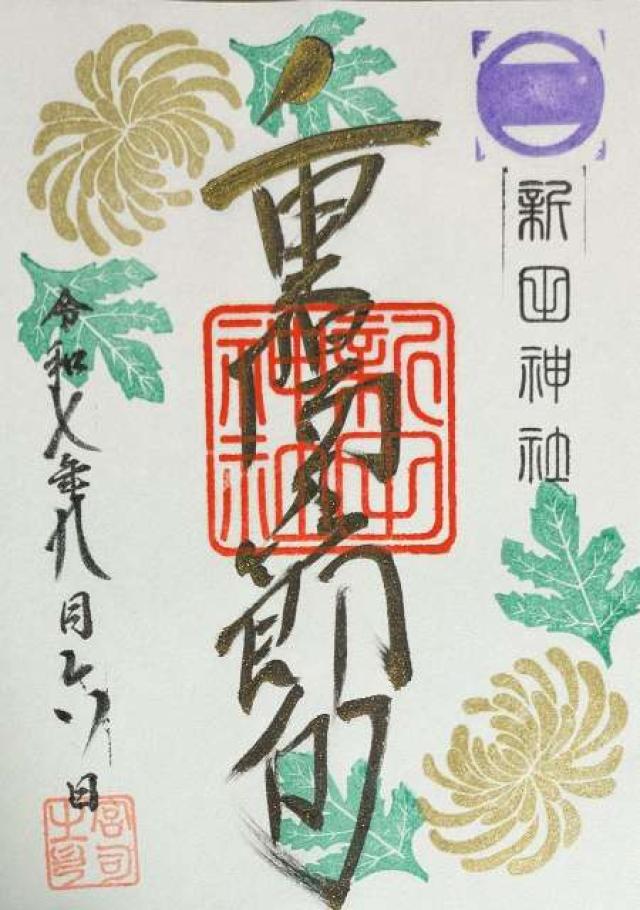 新田神社
重陽之節句
新田
神社
令和七年八月六日
宮司
之印